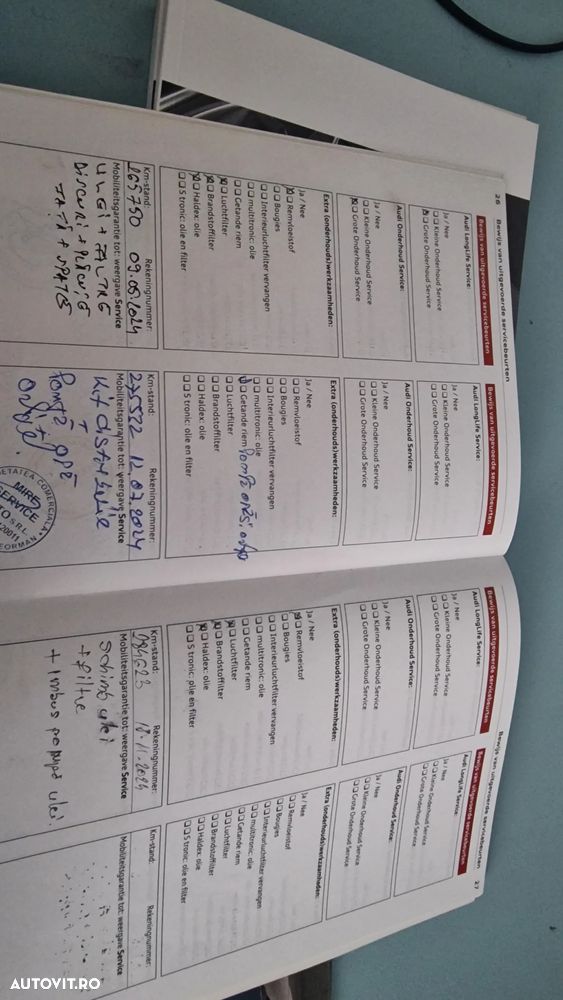 26 Bewijs van uitgevoerde servicebeurten
Bewijs van uitgevoerde servicebeurten
Audi LongLife Service:
Ja / Nee
Kleine Onderhoud Service
Grote Onderhoud Service
Audi Onderhoud Service:
Ja / Nee
Kleine Onderhoud Service
Grote Onderhoud Service
Extra (onderhouds)werkzaamheden:
Ja / Nee
Remvloeistof
Bougies
Interieurluchtfilter vervangen
multitronic: olie
Getande riem
Luchtfilter
Brandstoffilter
Haldex: olie
S tronic: olie en filter
Km-stand: Rekeningnummer:
265750 09.05.2024
Mobiliteitsgarantie tot: weergave Service
ULEI + FILTRE
Bewijs van uitgevoerde servicebeurten
Audi LongLife Service:
Ja / Nee
Kleine Onderhoud Service
Grote Onderhoud Service
Audi Onderhoud Service:
Ja / Nee
Kleine Onderhoud Service
Grote Onderhoud Service
Extra (onderhouds)werkzaamheden:
Ja / Nee
Remvloeistof
Bougies
Interieurluchtfilter vervangen
multitronic: olie
Getande riem
Luchtfilter
Brandstoffilter
Haldex: olie
S tronic: olie en filter
Km-stand: Rekeningnummer:
275522 12.07.2024
Mobiliteitsgarantie tot: weergave Service
Pompă apă
MIRE
SERVICE
S.R.L.
Bewijs van uitgevoerde servicebeurten 27
Bewijs van uitgevoerde servicebeurten
Audi LongLife Service:
Ja / Nee
Kleine Onderhoud Service
Grote Onderhoud Service
Audi Onderhoud Service:
Ja / Nee
Kleine Onderhoud Service
Grote Onderhoud Service
Extra (onderhouds)werkzaamheden:
Ja / Nee
Remvloeistof
Bougies
Interieurluchtfilter vervangen
multitronic: olie
Getande riem
Luchtfilter
Brandstoffilter
Haldex: olie
S tronic: olie en filter
Km-stand: Rekeningnummer:
18-11-2024
Mobiliteitsgarantie tot: weergave Service
schimb ulei
+ filtre
+ imbus pompă ulei.
Bewijs van uitgevoerde servicebeurten
Audi LongLife Service:
Ja / Nee
Kleine Onderhoud Service
Grote Onderhoud Service
Audi Onderhoud Service:
Ja / Nee
Kleine Onderhoud Service
Grote Onderhoud Service
Extra (onderhouds)werkzaamheden:
Ja / Nee
Remvloeistof
Bougies
Interieurluchtfilter vervangen
multitronic: olie
Getande riem
Luchtfilter
Brandstoffilter
Haldex: olie
S tronic: olie en filter
Km-stand: Rekeningnummer:
Mobiliteitsgarantie tot: weergave Service
AUTOVIT.RO